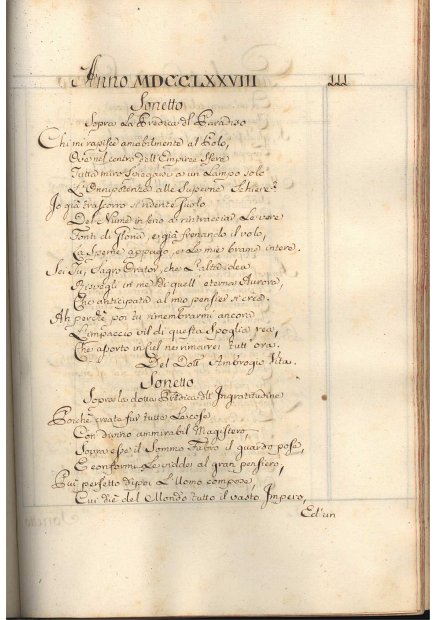 Anno MDCCLXXVIII
111
Sonetto
Sopra La Predica del Paradiso
Chi mi rapisce amabilmente al Polo,
Ove nel centro dell'Empiree Sfere
Tutta miro spiegarsi a un Lampo solo
L'Onnipotenza alle Superne Schiere?
Io già trascorro il ridente suolo
Del Nume in seno a rintracciar Le vere
Fonti di Gloria, e già frenando il volo,
La speme appago, e Le mie brame intere.
Sei Tu, Sagro Orator, che L'alta idea
Risvegli in me di quell'eterna Aurora,
Che anticipata al mio pensier si crea.
Ah perchè poi tu rimembrarmi ancora
L'impaccio vil di questa Spoglia rea,
Che assorto in Ciel ne rimarrei tutt'ora.
Del Dott. Ambrogio Vita.
Sonetto
Sopra la dotta Predica dell'Ingratitudine
Poichè create fur tutte Le cose
Con divino ammirabil Magistero,
Sopra esse il Sommo Fabro il guardo pose,
E conformi Le vidde al gran pensiero,
Più perfetto dipoi L'Uomo compose,
Cui diè del Mondo tutto il vasto Impero,
Ed un